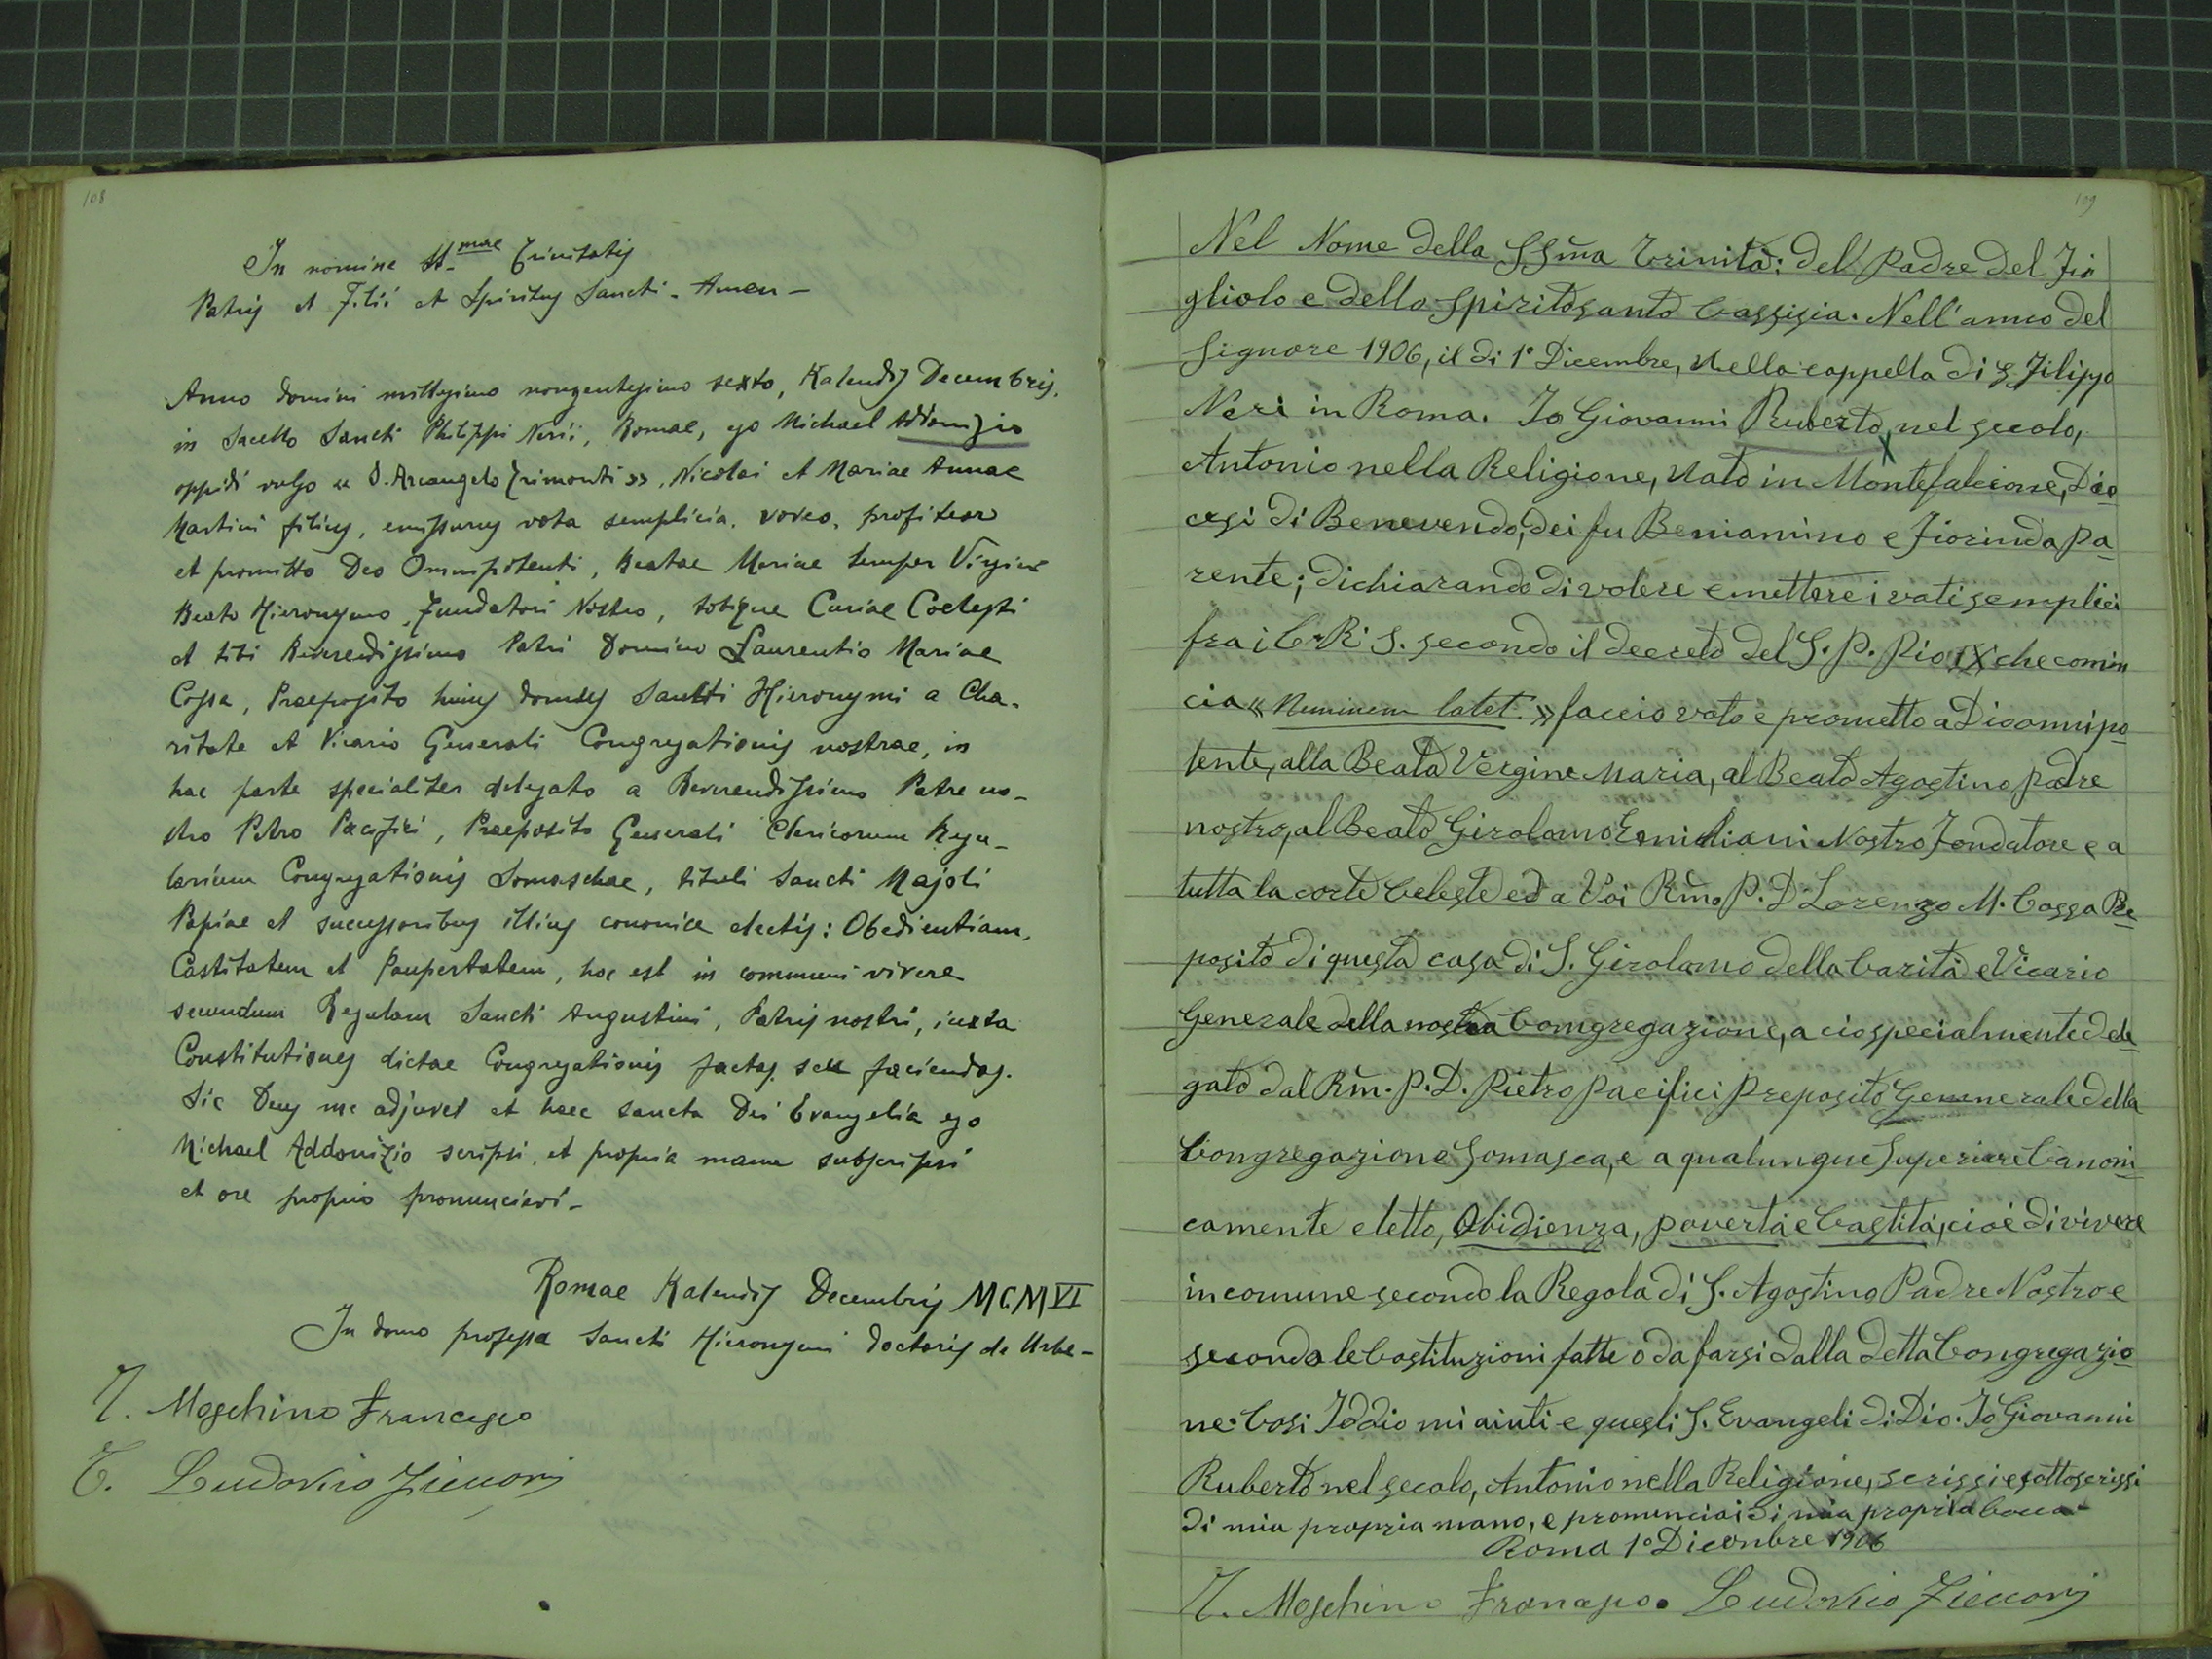 108
In nomine SS.mae Trinitatis
Patris et Filii et Spiritus Sancti - Amen -
Anno domini millesimo nongentesimo sexto, Kalendis Decembris,
in Sacello Sancti Philippi Nerii, Romae, ego Michael Addonizio
oppidi vulgo « S. Arcangelo Trimonti », Nicolai et Mariae Annae
Martini filius, emissurus vota semplicia, voveo, profiteor
et promitto Deo Omnipotenti, Beatae Mariae semper Virgini
Beato Hieronymo, Fundatori Nostro, totique Curiae Coelesti
et tibi Reverendissimo Patri Domino Laurentio Mariae
Cossa, Praeposito huius domus Sancti Hieronymi a Cha-
ritate et Vicario Generali Congregationis nostrae, in
hac parte specialiter delegato a Reverendissimo Patre no-
stro Petro Pacifici, Praeposito Generali Clericorum Regu-
larium Congregationis Somaschae, tituli Sancti Majoli
Papiae et successoribus illius cononice electis: Obedientiam,
Castitatem et Paupertatem, hoc est in communi vivere
secundum Regulam Sancti Augustini, Patris nostri, iuxta
Constitutiones dictae Congregationis factas seu faciendas.
Sic Deus me adjuvet et haec sancta Dei Evangelia ego
Michael Addonizio scripsi, et propria manu subscripsi
et ore proprio pronunciavi -
Romae Kalendis Decembris MCMVI
In domo professa Sancti Hieronymi doctoris de Urbe -
T. Moschino Francesco
T. Ludovico Zicconi
109
Nel Nome della SSm̃a Trinità: del Padre del Fio
gliolo e dello Spiritosanto Cassisia. Nell'anno del
Signore 1906, il di 1° Dicembre, nella cappella di S Filippo
Neri in Roma. Io Giovanni Ruberto, nel secolo,
Antonio nella Religione, nato in Montefalcione, Dio
cesi di Benevendo, dei fu Beniamino e Fiorinda Pa
rente; dichiarando di volere emettere i voti semplici
fra i C. R. S. secondo il decreto del S. P. Pio IX che comin
cia « Neminem latet. » faccio voto e prometto a Dio onnipo
tente, alla Beata Vergine Maria, al Beato Agostino padre
nostro, al Beato Girolamo Emiliani Nostro Fondatore e a
tutta la corte Celeste ed a Voi Rm̃o P. D Lorenzo M. Cossa Pre
posito di questa casa di S. Girolamo della Carità e Vicario
Generale della nostra Comgregazione, a cio specialmente dele
gato dal Rm̃. P. D. Pietro Pacifici Preposito Gennerale della
Congregazione Somasca, e a qualunque Superiore Canoni
camente eletto, Obidienza, povertà e Castità, cioè di vivere
in comune secondo la Regola di S. Agostino Padre Nostro e
secondo le Costituzioni fatte o da farsi dalla detta Congregazio
ne. Cosi Iddio mi aiuti e questi S. Evangeli di Dio. Io Giovanni
Ruberto nel secolo, Antonio nella Religione, scrissi e sottoscrissi
di mia propria mano, e pronunciai di mia propria bocca
Roma 1° Dicenbre 1906
T. Moschino Francesco. Ludovico Zicconi